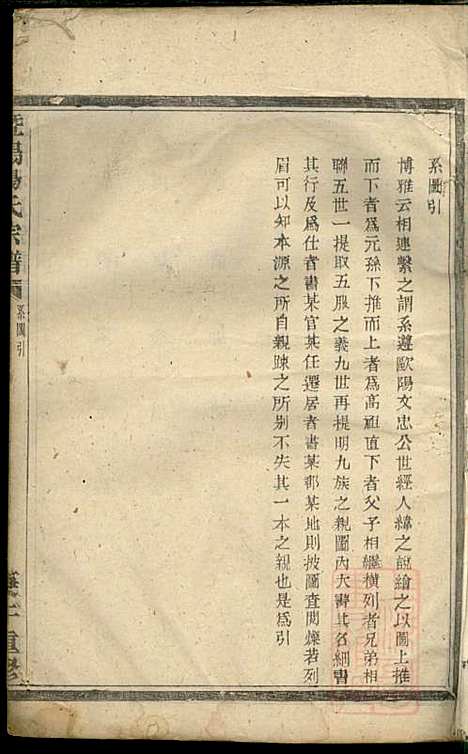 系圖引
博雅云相連繫之謂系遵歐陽文忠公世經人緯之說繪之以圖上推
而下者爲元孫下推而上者爲高祖直下者父子相繼橫列者兄弟相
聯五世一提取五服之義九世再提明九族之親圖內大書其名細書
其行及爲仕者書某官某任遷居者書某郡某地則披圖查閱燦若列
眉可以知本源之所自親踈之所別不失其一本之親也是爲引
暨陽楊氏宗譜
系圖引
重修